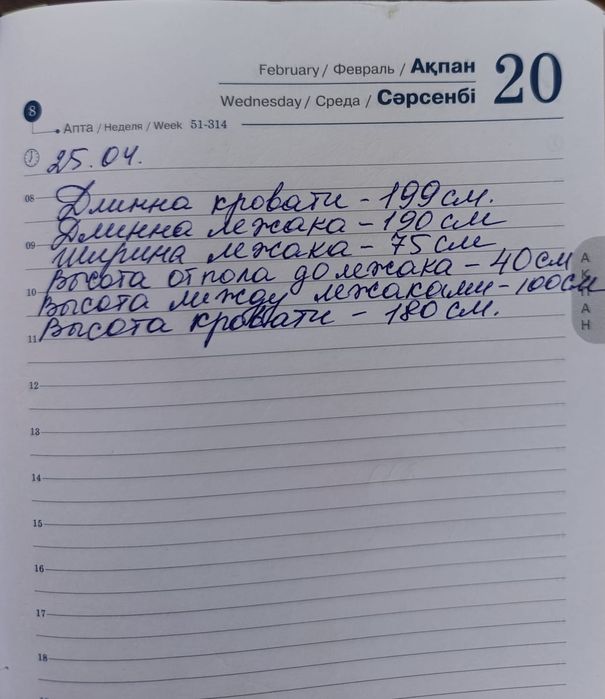 February / Февраль / Ақпан
20
Wednesday / Среда / Сәрсенбі
8
Апта / Неделя / Week 51-314
25.04.
08
Длинна кровати - 199 см.
Длинна лежака - 190 см
09
Ширина лежака - 75 см
Высота от пола до лежака - 40 см
10
Высота между лежаками - 100 см
Высота кровати - 180 см.
11
12
13
14
15
16
17
18
АҚПАН